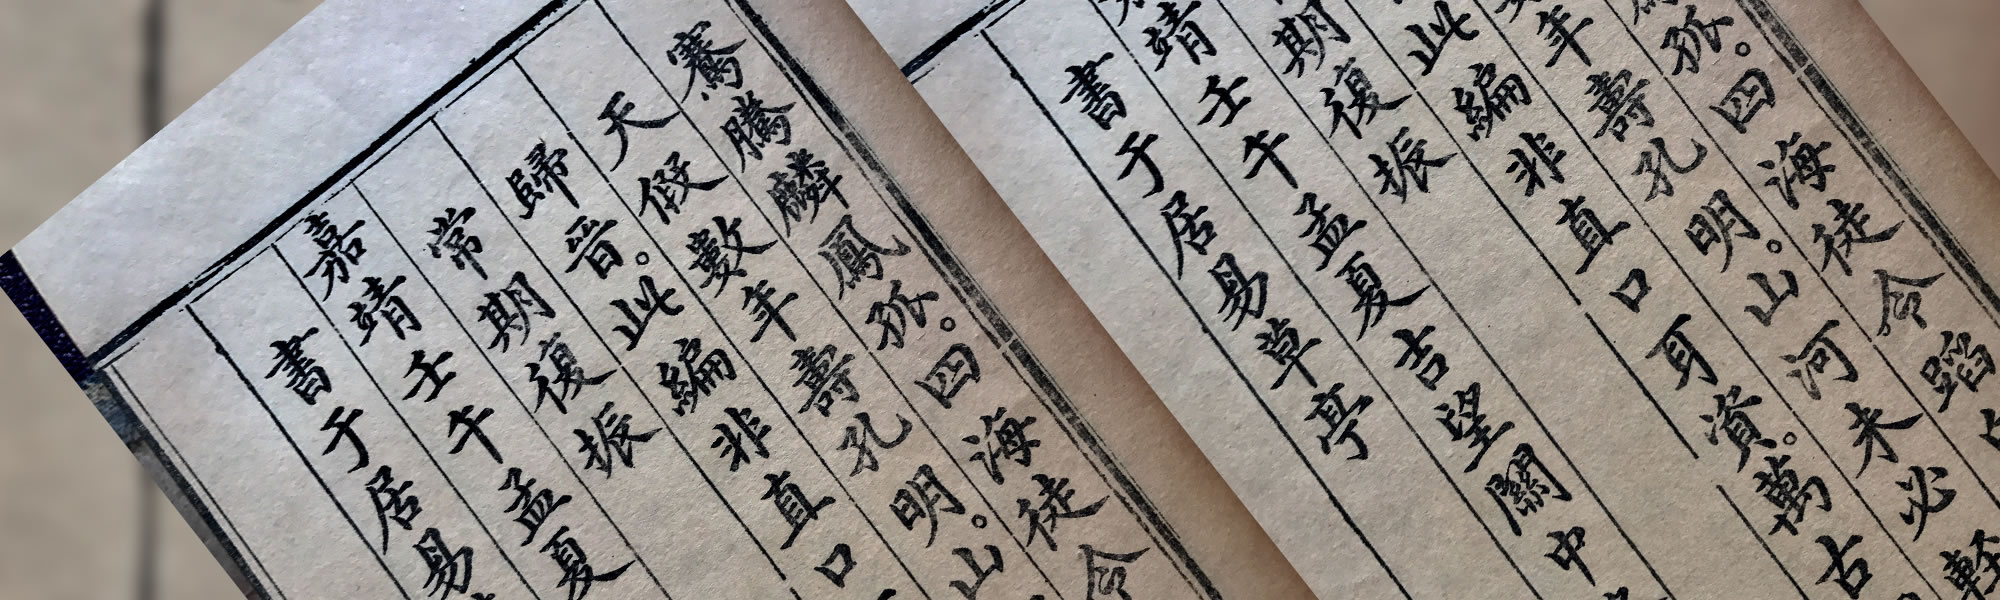 騫騰麟鳳孤。四海徒令
天假數年壽孔明。山
歸晉。此編非直口
常期復振
嘉靖壬午孟夏
書于居易
孤。四海徒令蹈
年壽孔明。山河未必輕
此編非直口耳資。萬古
期復振
靖壬午孟夏吉望關中
書于居易草亭